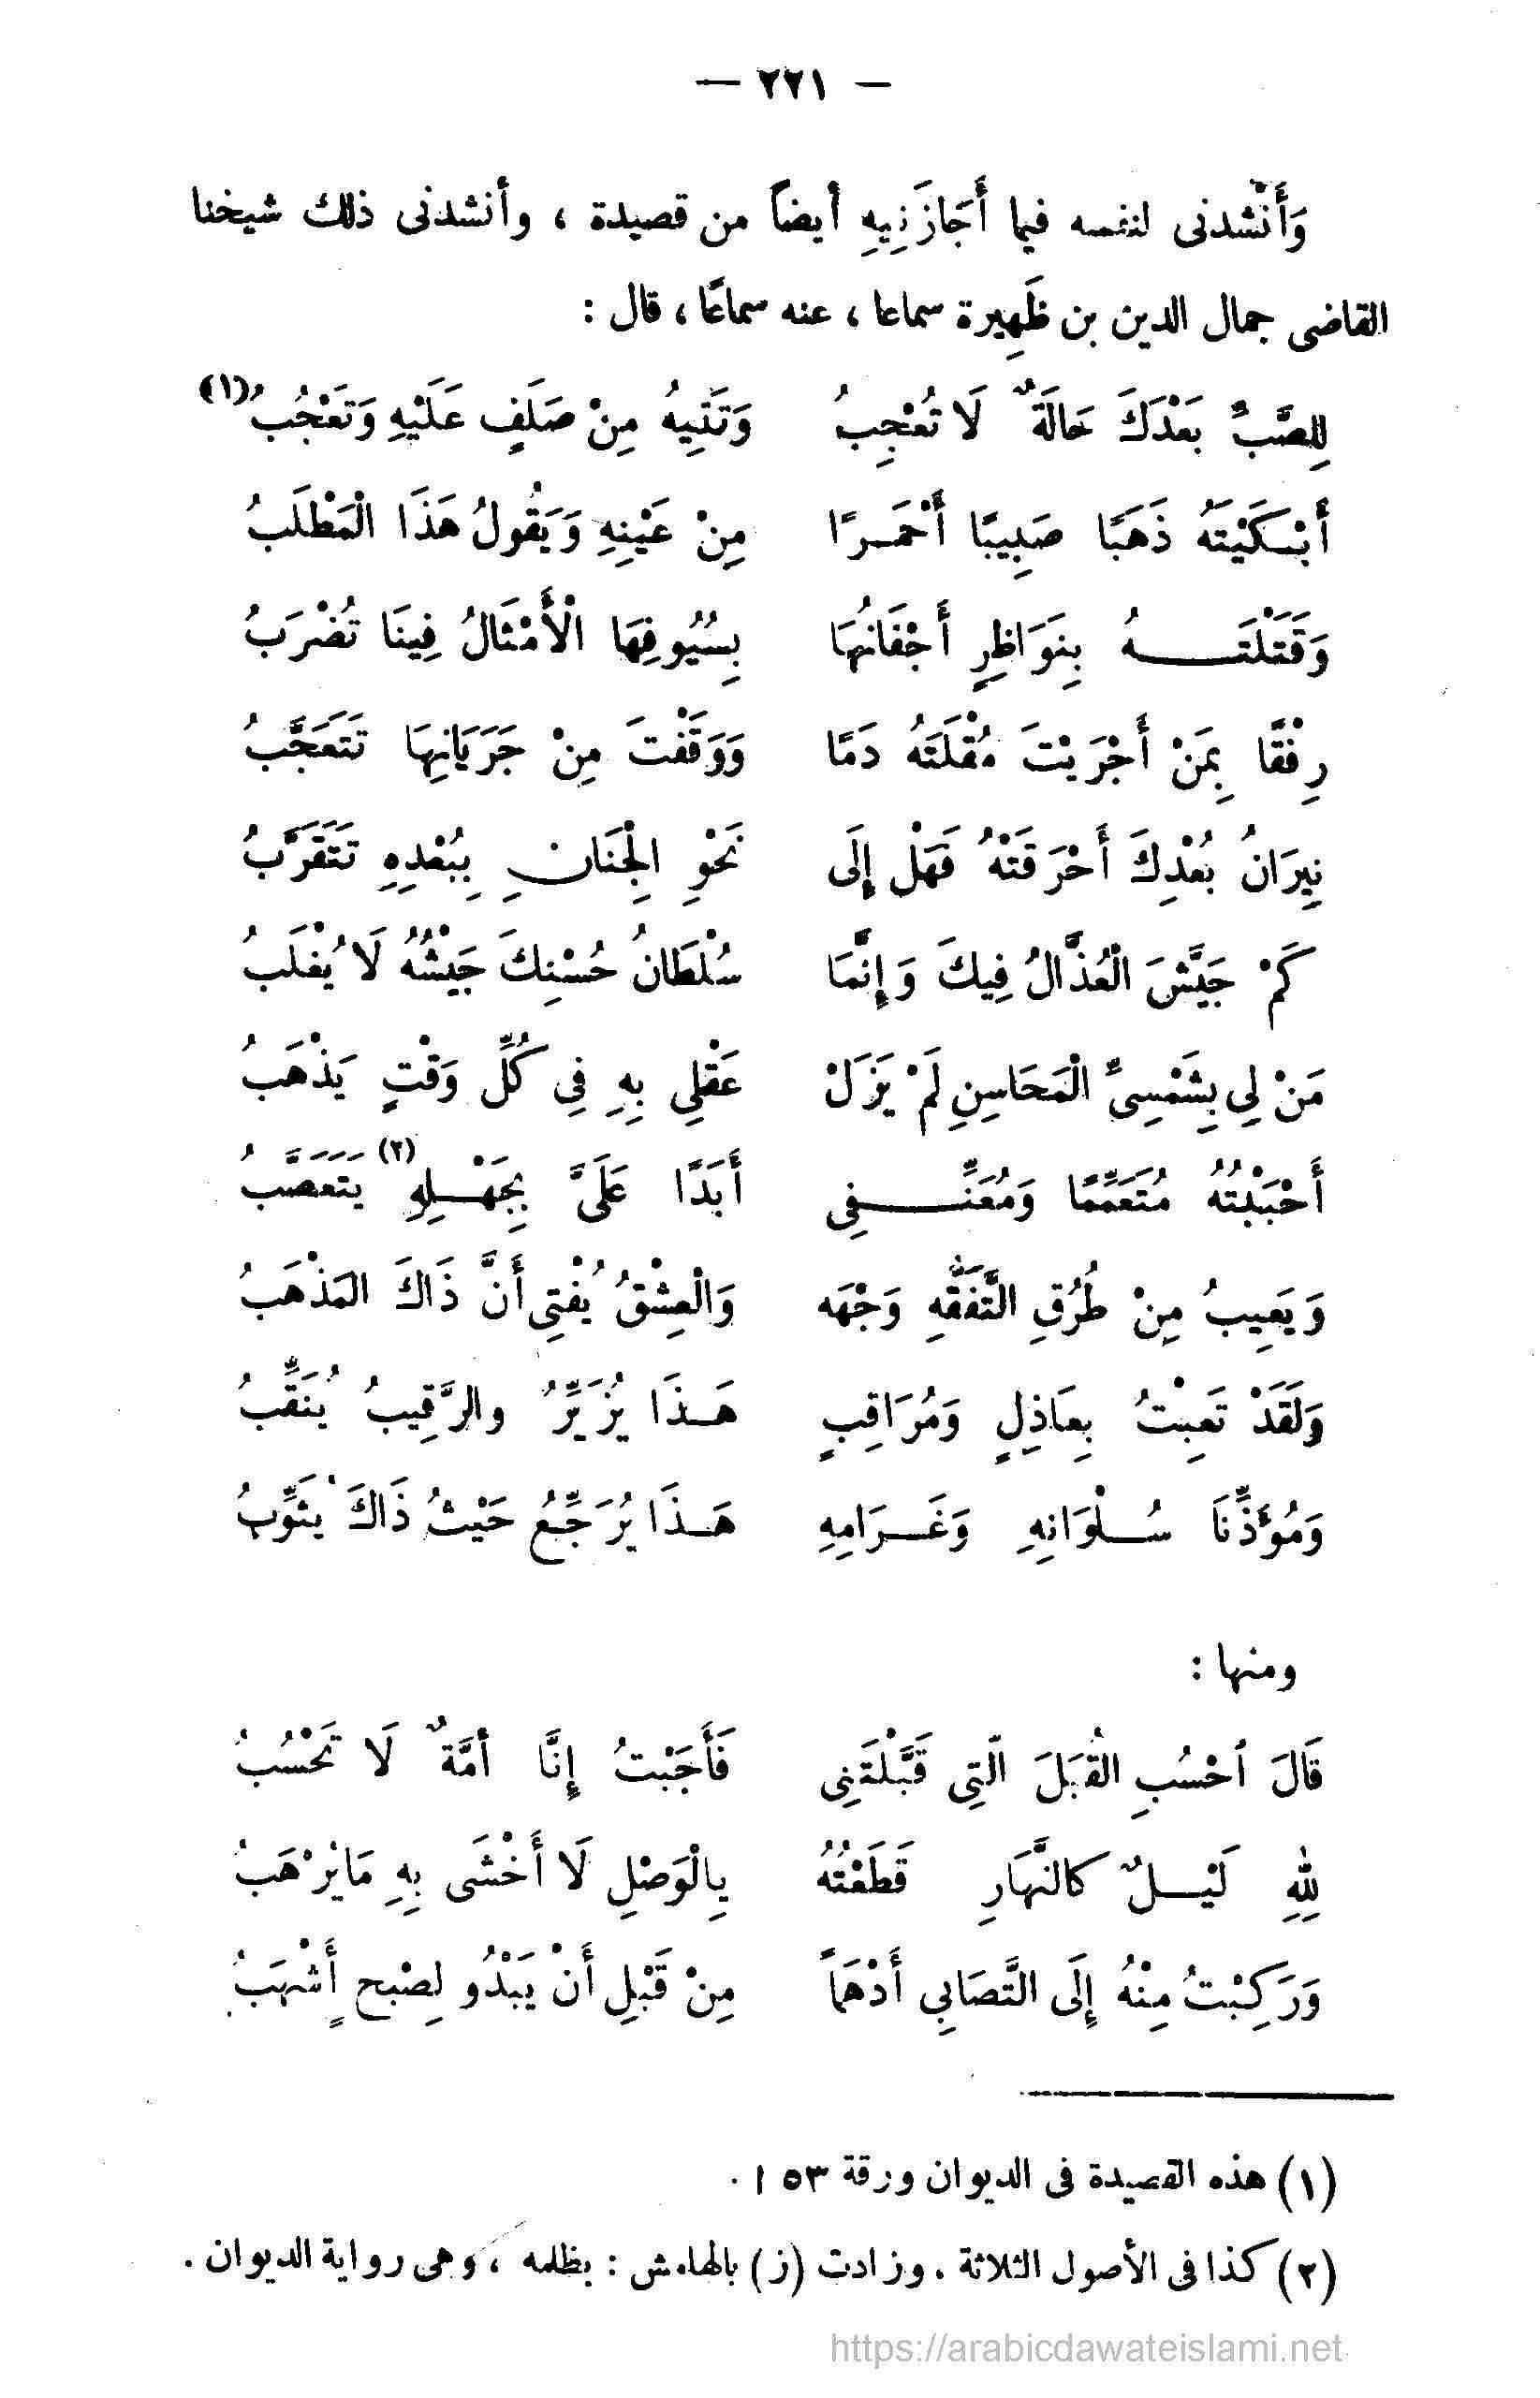 — ٢٢١ —
وَأَنْشدنى لنفسه فيما أَجَازَنِيهِ أيضاً من قصيدة ، وأنشدنى ذلك شيخنا
القاضى جمال الدين بن ظَهِيرة سماعا ، عنه سماعًا ، قال :
لِلصَّبِّ بَعْدَكَ حَالَةٌ لَا تُعْجِبُ وَتَتِيهُ مِنْ صَلَفٍ عَلَيْهِ وَتَعْجُبُ (١)
أَبْكَيْتَهُ ذَهَبًا صَبِيبًا أَحْمَرًا مِنْ عَيْنِهِ وَيَقُولُ هَذَا الْمَطْلَبُ
وَقَتَلْتَهُ بِنَوَاظِرٍ أَجْفَانُهَا بِسُيُوفِهَا الْأَمْثَالُ فِينَا تُضْرَبُ
رِفْقًا بِمَنْ أَجْرَيْتَ مُقْلَتَهُ دَمًا وَوَقَفْتَ مِنْ جَرَيَانِهَا تَتَعَجَّبُ
نِيرَانُ بُعْدِكَ أَحْرَقَتْهُ فَهَلْ إِلَى نَحْوِ الْجِنَانِ بِبُعْدِهِ تَتَقَرَّبُ
كَمْ جَيَّشَ الْعُذَّالُ فِيكَ وَإِنَّمَا سُلْطَانُ حُسْنِكَ جَيْشُهُ لَا يُغْلَبُ
مَنْ لِى بِشَمْسِىِّ الْمَحَاسِنِ لَمْ يَزَلْ عَقْلِى بِهِ فِى كُلِّ وَقْتٍ يَذْهَبُ
أَحْبَبْتُهُ مُتَعَمِّمًا وَمُعَنِّفِى أَبَدًا عَلَىَّ بِجَهْلِهِ (٢) يَتَعَصَّبُ
وَيَعِيبُ مِنْ طُرُقِ التَّفَقُّهِ وَجْهَه وَالْعِشْقُ يُفْتِى أَنَّ ذَاكَ المَذْهَبُ
وَلَقَدْ تَعِبْتُ بِعَاذِلٍ وَمُرَاقِبٍ هَذَا يُزَيِّرُ والرَّقِيبُ يُنَقِّبُ
وَمُؤَذِّنَا سُلْوَانِهِ وَغَرَامِهِ هَذَا يُرَجِّعُ حَيْثُ ذَاكَ يثَوِّبُ
ومنها :
قَالَ اُحْسُبِ القُبَلَ الَّتِى قَبَّلْتَنِى فَأَجَبْتُ إِنَّا أمَّةٌ لَا تَحْسُبُ
لِلهِ لَيْلٌ كالنَّهَارِ قَطَعْتُهُ بِالْوَصْلِ لَا أَخْشَى بِهِ مَا يُرْهَبُ
وَرَكِبْتُ مِنْهُ إِلَى التَّصَابِى أَدْهَمَاً مِنْ قَبْلِ أَنْ يَبْدُو لِصْبحٍ أَشْهَبُ
(١) هذه القصيدة فى الديوان ورقة ١٥٣ .
(٢) كذا فى الأصول الثلاثة . وزادت (ز) بالهامش : بظلمه ، وهى رواية الديوان .
https://arabicdawateislami.net